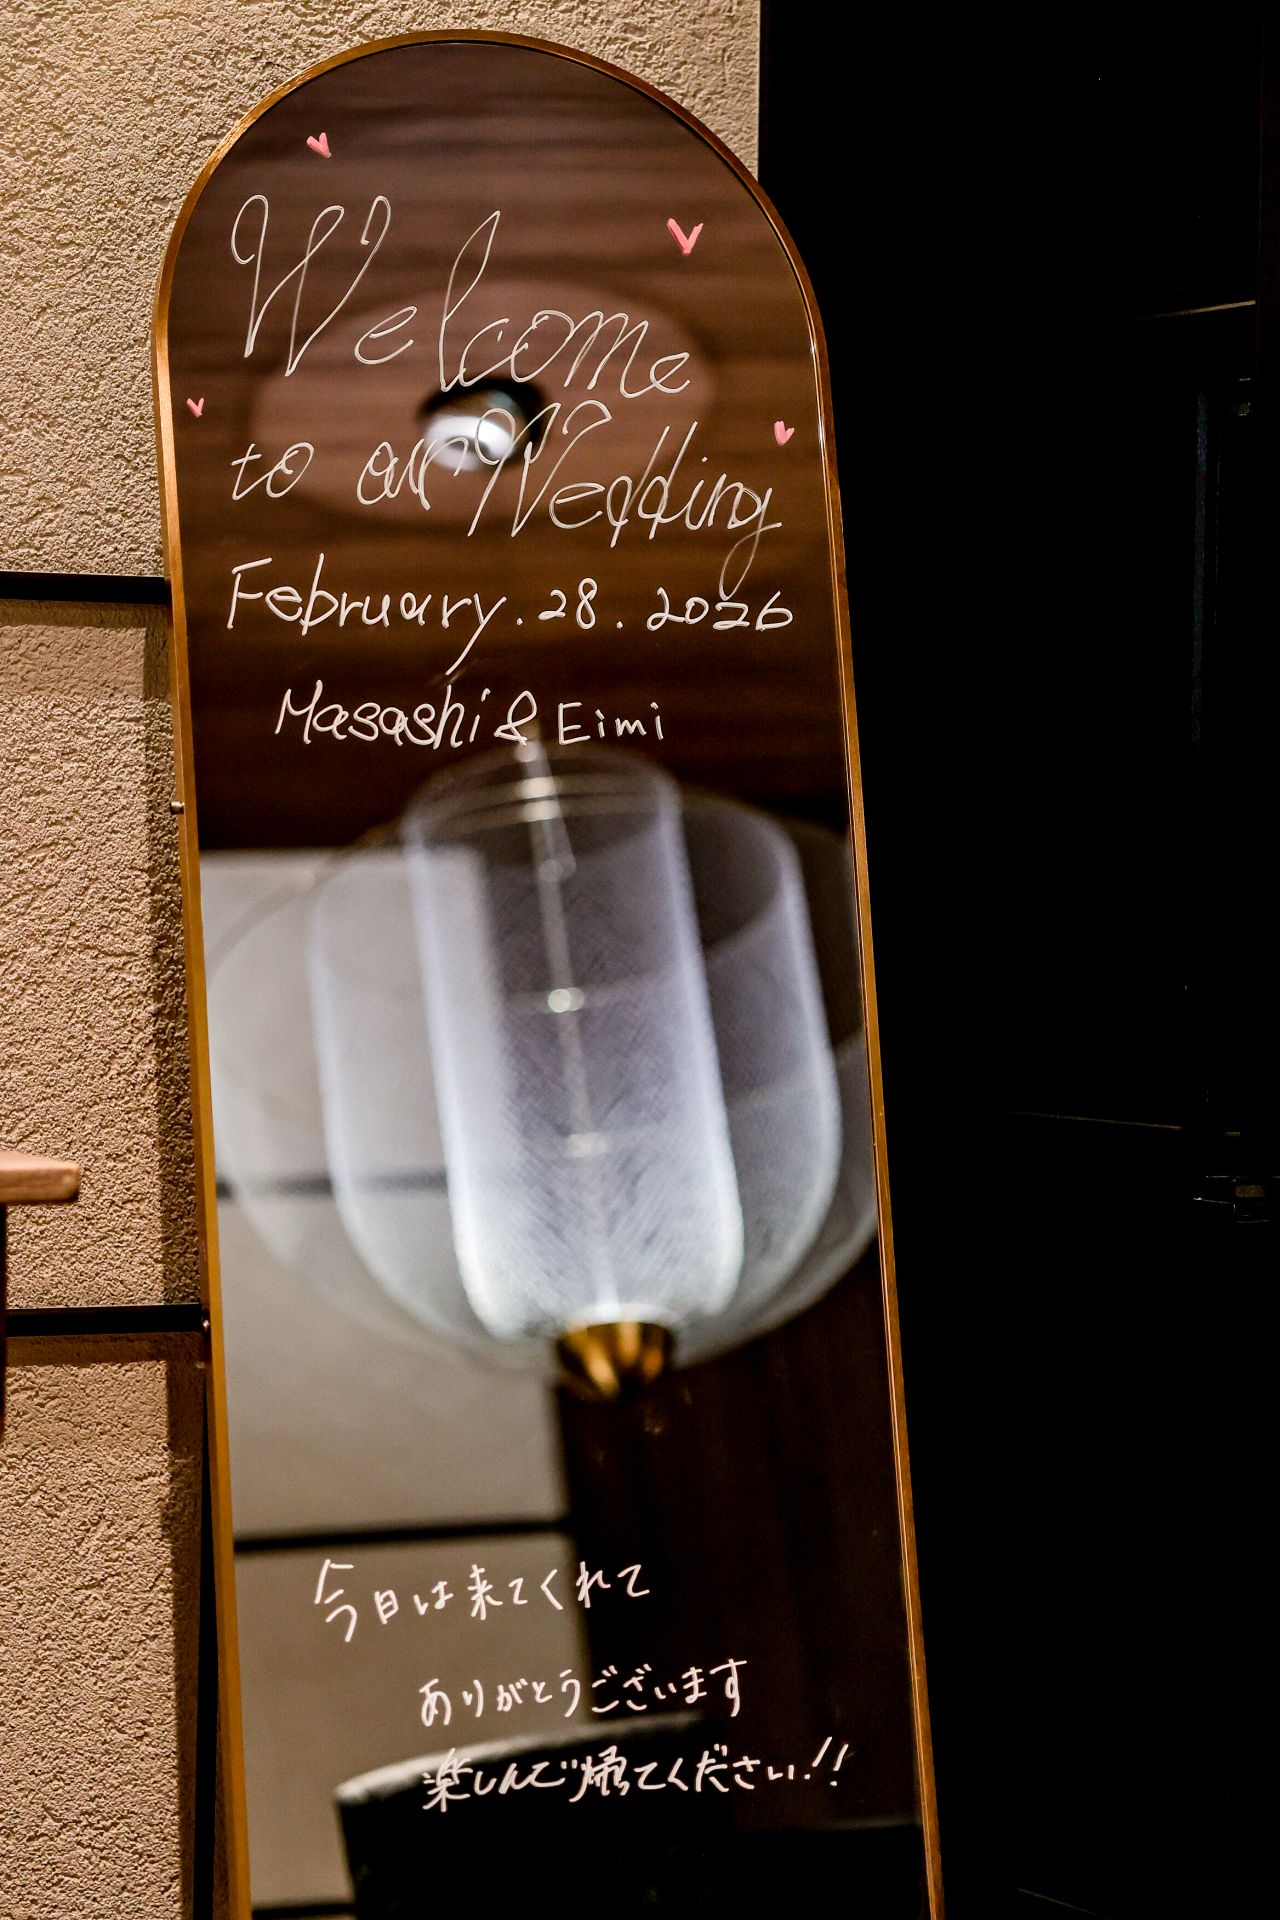 Welcome
to our Wedding
February. 28. 2026
Masashi & Eimi
今日は来てくれて
ありがとうございます
楽しんで帰ってください!!